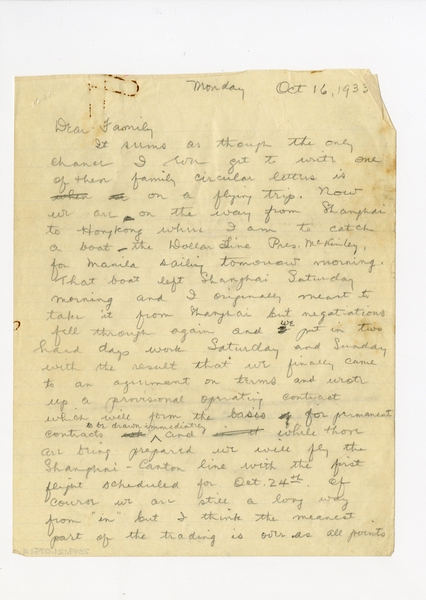 Monday Oct 16, 1933
Dear Family
It seems as though the only
chance I ever get to write one
of these family circular letters is
on a flying trip. Now
we are on the way from Shanghai
to Hongkong where I am to catch
a boat - the Dollar Line Pres. McKinley,
for Manila sailing tomorrow morning.
That boat left Shanghai Saturday
morning and I originally meant to
take it from Shanghai but negotiations
fell through again and we put in two
hard days work Saturday and Sunday
with the result that we finally came
to an agreement on terms and wrote
up a provisional operating contract
which will form the basis for permanent
contracts to be drawn immediately and while those
are being prepared we will fly the
Shanghai - Canton line with the first
flight scheduled for Oct. 24th. Of
course we are still a long way
from "in" but I think the meanest
part of the trading is over as all points